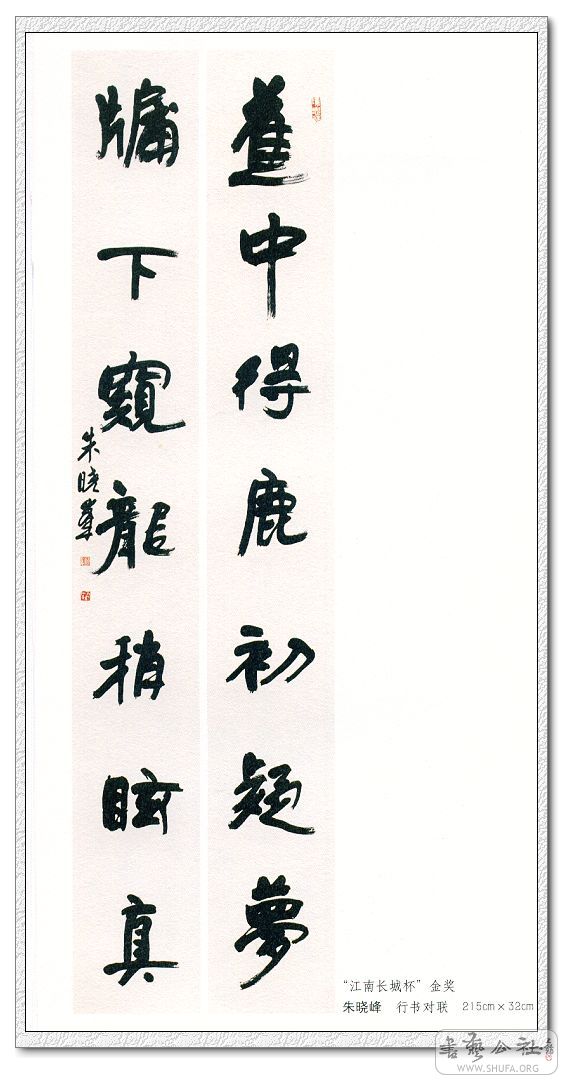 蕉中得鹿初疑夢
牖下窺龍稍眩真
朱晓峯
“江南长城杯”金奖
朱晓峰 行书对联 215cm×32cm
書藝公社
WWW.SHUFA.ORG